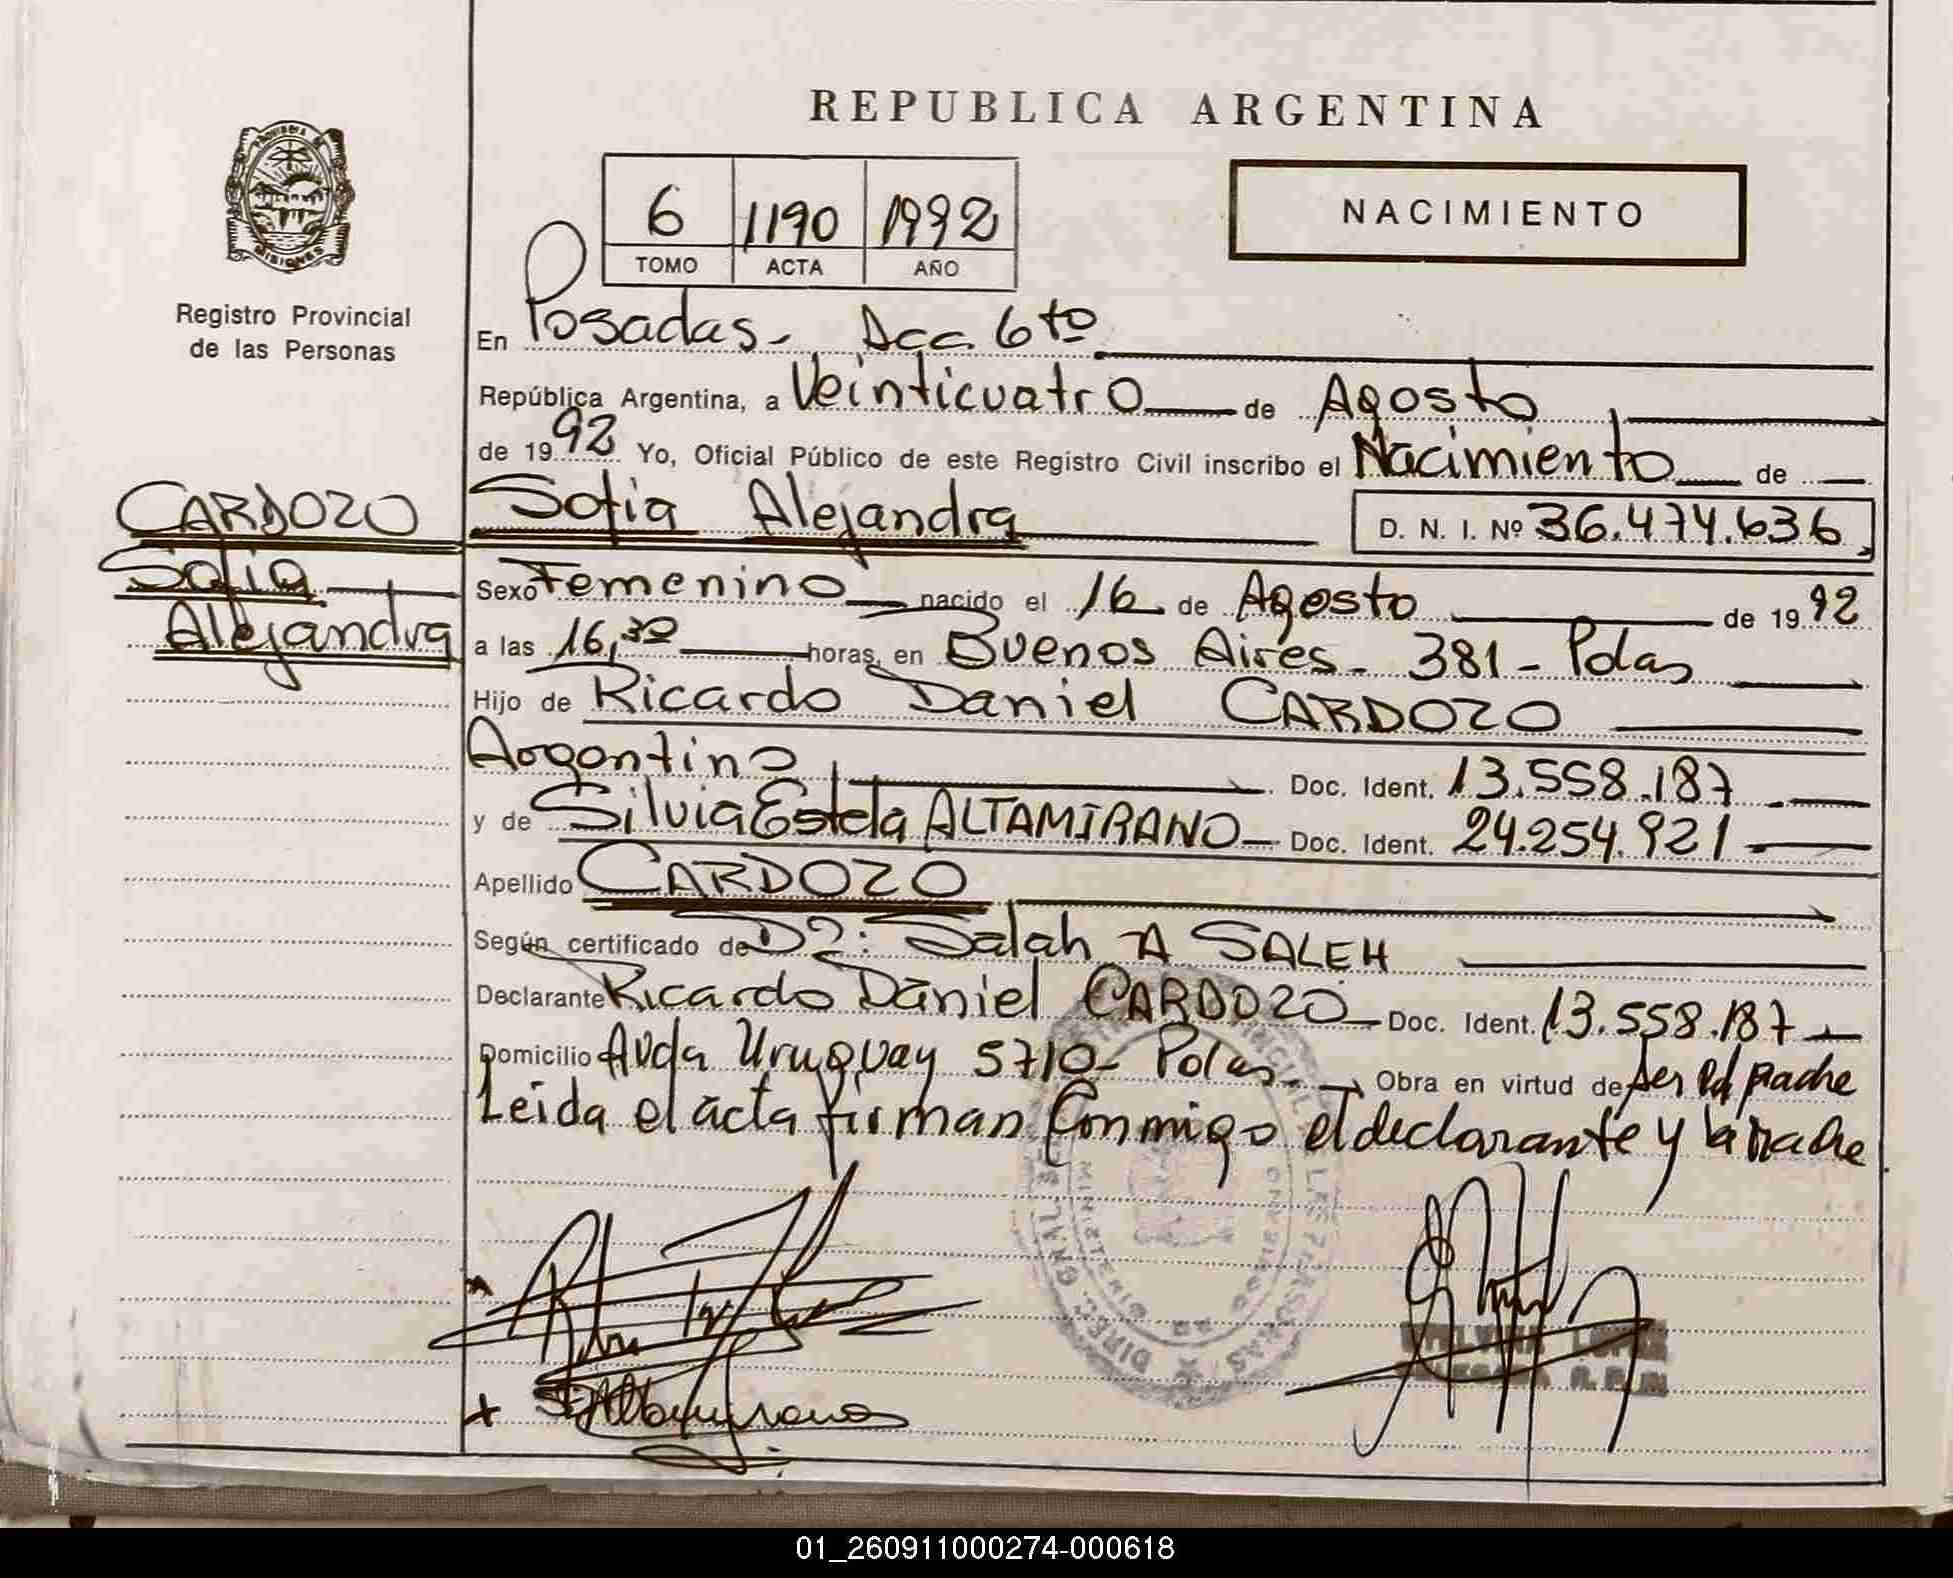 REPUBLICA ARGENTINA
NACIMIENTO
6 1190 1992
TOMO ACTA AÑO
PROVINCIA DE
MISIONES
Registro Provincial
de las Personas
CARDOZO
Sofia
Alejandra
En Posadas- Acc 6to
República Argentina, a Veinticuatro de Agosto
de 1992 Yo, Oficial Público de este Registro Civil inscribo el Nacimiento de
Sofia Alejandra D. N. I. Nº 36.474.636
Sexo Femenino nacido el 16 de Agosto de 1992
a las 16,30 horas, en Buenos Aires- 381- Pdas
Hijo de Ricardo Daniel CARDOZO
Argentino Doc. Ident. 13.558.187
y de Silvia Estela ALTAMIRANO Doc. Ident. 24.254.921
Apellido CARDOZO
Según certificado de Dr: Salah A SALEH
Declarante Ricardo Daniel CARDOZO Doc. Ident. 13.558.187
Domicilio Avda Uruguay 5710- Pdas Obra en virtud de ser el padre
Leida el acta firman Conmigo el declarante y la madre
01_260911000274-000618